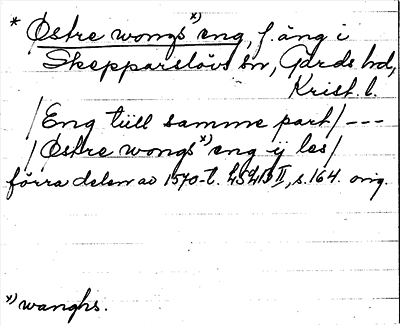 * Østre wongs ˣ⁾ eng, f. äng i
Skepparslövs sn, Gärds hd,
Krist. l.
/Eng tiill samme part/ ---
/Østre wongs ˣ⁾ eng ij les/
förra delen av 1570-t. LSAB II, s. 164. orig.
ˣ⁾ wanghs.